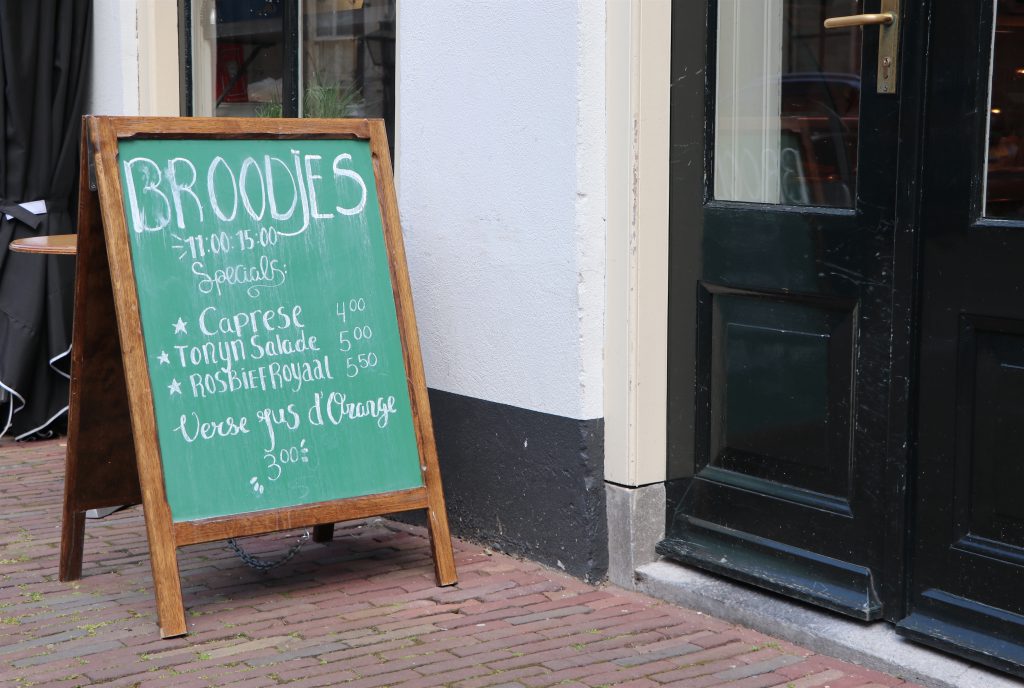 BROODjES
11:00-15:00
Specials:
Caprese 4 00
Tonyn Salade 5 00
ROSBiEF Royaal 5 50
Verse jus d'Orange
3 00